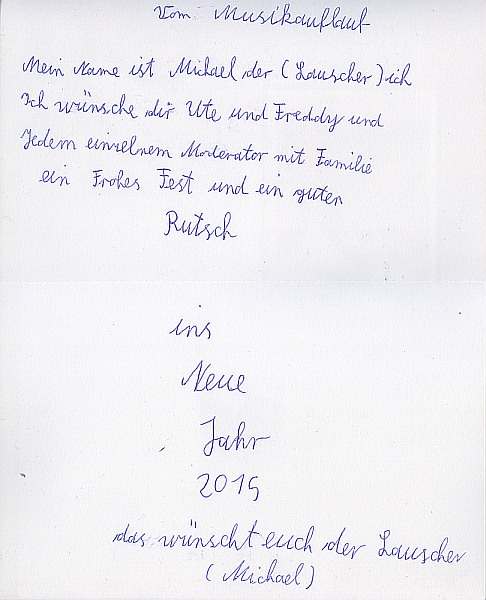 Vom Musikauflauf
Mein Name ist Michael der (Lauscher) ich
Ich wünsche dir Ute und Freddy und
Jedem einzelnem Moderator mit Familie
ein Frohes Fest und ein guten
Rutsch
ins
Neue
Jahr
2019
das wünscht euch der Lauscher
(Michael)